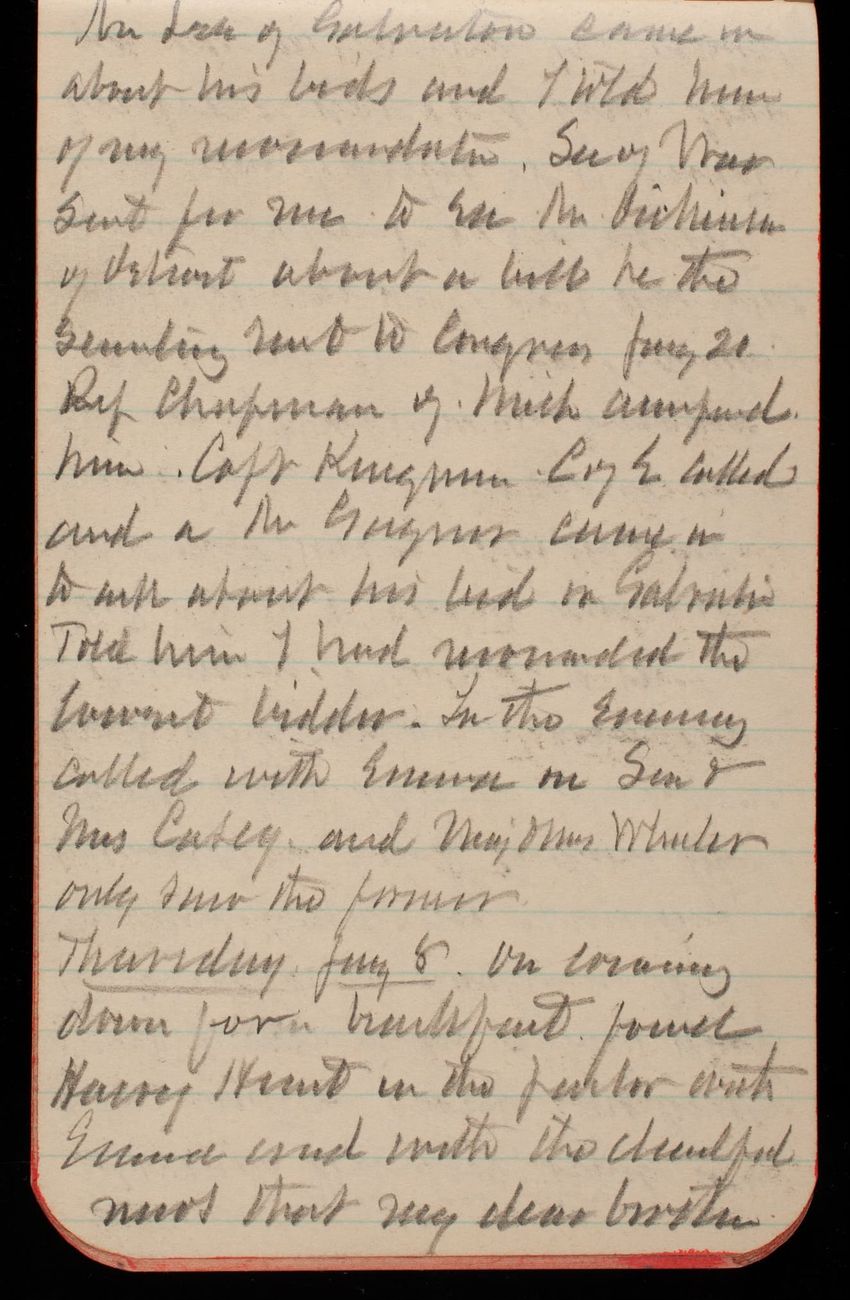 Mr Lea of Galveston came in
about his bids and I told him
of my recommendation. Sec of War
sent for me to see Mr Dickinson
of Detroit about a bill he the
Secretary sent to Congress Jany 20
Rep Chapman of Mich accompd
him. Capt Kingman C of E called
and a Mr came in
to ask about his bid on Galveston
Told him I had recommended the
lowest bidder. In the Evening
called with Emma on Sen &
Mrs Casey and Maj & Mrs Wheeler
only saw the former
Thursday Jany 8. On coming
down for breakfast found
Harry Hunt in the parlor with
Emma and with the dreadful
news that my dear brother